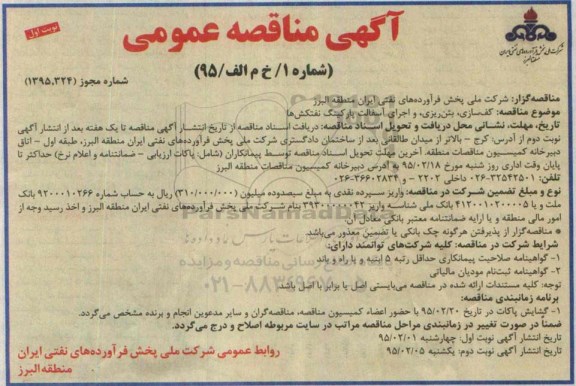 نوبت اول
آگهی مناقصه عمومی
شرکت ملی پخش فرآورده‌های نفتی ایران
منطقه البرز
(شماره ۱/ خ م الف/۹۵)
شماره مجوز (۱۳۹۵،۳۲۴)
مناقصه‌گزار: شرکت ملی پخش فرآورده‌های نفتی ایران منطقه البرز
موضوع مناقصه: کف‌سازی، بتن‌ریزی، و اجرای آسفالت پارکینگ نفتکش‌ها
تاریخ، مهلت، نشانی محل دریافت و تحویل اسناد مناقصه: دریافت اسناد مناقصه از تاریخ انتشار آگهی مناقصه تا یک هفته بعد از انتشار آگهی
نوبت دوم از آدرس: کرج – بالاتر از میدان طالقانی بعد از ساختمان دادگستری شرکت ملی پخش فرآورده‌های نفتی ایران منطقه البرز، طبقه اول – اتاق
دبیرخانه کمیسیون مناقصات منطقه آخرین مهلت تحویل اسناد مناقصه توسط پیمانکاران (شامل: پاکات ارزیابی – ضمانتنامه و اعلام نرخ) حداکثر تا
پایان وقت اداری روز شنبه مورخ ۹۵/۰۲/۱۸ به آدرس دبیرخانه کمیسیون مناقصات منطقه البرز
تلفن: ۳۲۵۴۲۵۰۱-۰۲۶ داخلی ۲۲۰۲ – و ۳۶۶۰۲۸۳۴-۰۲۶
نوع و مبلغ تضمین شرکت در مناقصه: واریز سپرده نقدی به مبلغ سیصدوده میلیون (۳۱۰/۰۰۰/۰۰۰) ریال به حساب شماره ۹۲۰۰۰۱۰۲۶۶ بانک
ملت و یا ۴۱۲۰۰۱۰۲۰۰۰۵ بانک ملی شناسه واریز ۳۹۳۰۰۰۰۰۰۴۲ بنام شرکت ملی پخش فرآورده‌های نفتی ایران منطقه البرز و اخذ رسید وجه از
امور مالی منطقه و یا ارایه ضمانتنامه معتبر بانکی معادل آن.
* مناقصه‌گزار از پذیرفتن هرگونه چک بانکی یا تضمین معذور می‌باشد.
شرایط شرکت در مناقصه: کلیه شرکت‌های توانمند دارای:
۱- گواهینامه صلاحیت پیمانکاری حداقل رتبه ۵ ابنیه و یا راه و باند
۲- گواهینامه ثبت‌نام مودیان مالیاتی
توجه: کلیه مستندات ارائه شده در مناقصه می‌بایستی اصل یا برابر با اصل باشد.
برنامه زمانبندی مناقصه:
۱- گشایش پاکات در تاریخ ۹۵/۰۲/۲۰ با حضور اعضاء کمیسیون مناقصه، مناقصه‌گران و سایر مدعوین انجام و برنده مشخص می‌گردد.
ضمنا در صورت تغییر در زمانبندی مراحل مناقصه مراتب در سایت مربوطه اصلاح و درج می‌گردد.
تاریخ انتشار آگهی نوبت اول: چهارشنبه ۹۵/۰۲/۰۱
تاریخ انتشار آگهی نوبت دوم: یکشنبه ۹۵/۰۲/۰۵
روابط عمومی شرکت ملی پخش فرآورده‌های نفتی ایران
منطقه البرز
ParsNamadData
۰۲۱-۸۸۳۴۹۶۷۰